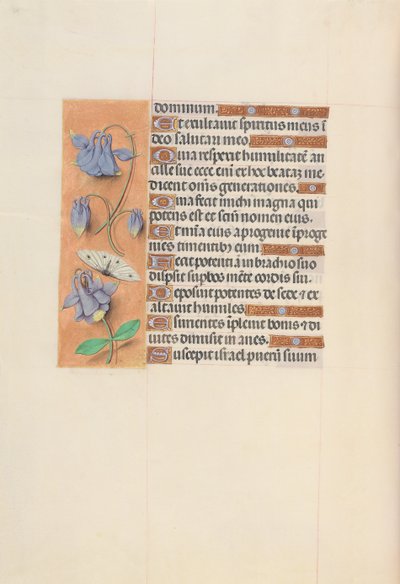 dominum.
Et exultavit spiritus meus i
deo salutari meo.
Quia respexit humilitatē an
cille sue ecce enī ex hoc beatam me
dicent oms generationes.
Quia fecit michi magna qui
potens est et scm nomen eius.
Et mīa eius a progenie ī proge
nies timentibus eum.
Fecit potentiā in brachio suo
dispsit supbos mēte cordis sui.
Deposuit potentes de sede et ex
altavit humiles.
Esurientes īplevit bonis et di
vites dimisit inanes.
Suscepit israel puerū suum